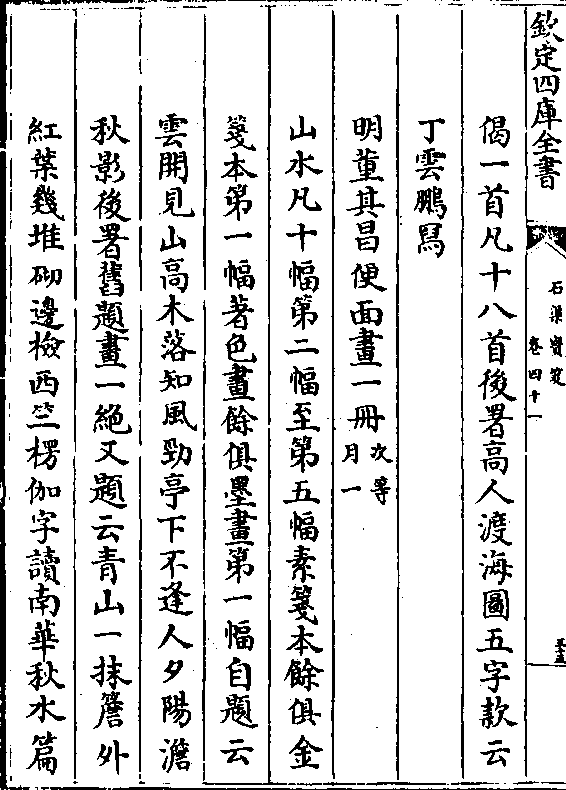 欽定四庫全書
石渠寳笈
卷四十一
偈一首凡十八首後署高人渡海圖五字款云
丁雲鵬冩
明董其昌便面畫一冊次等
月一
山水凡十幅第二幅至第五幅素箋本餘俱金
箋本第一幅著色畫餘俱墨畫第一幅自題云
雲開見山高木落知風勁亭下不逢人夕陽澹
秋影後署舊題畫一絶又題云青山一抹簷外
紅葉幾堆砌邊檢西竺楞伽字讀南華秋水篇